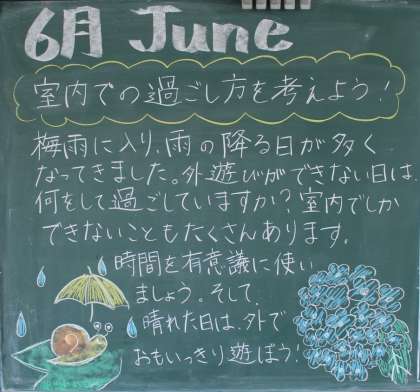 6月 June
室内での過ごし方を考えよう!
梅雨に入り、雨の降る日が多く
なってきました。外遊びができない日は、
何をして過ごしていますか?室内でしか
できないこともたくさんあります。
時間を有意議に使い
ましょう。そして、
晴れた日は、外で
おもいっきり遊ぼう!